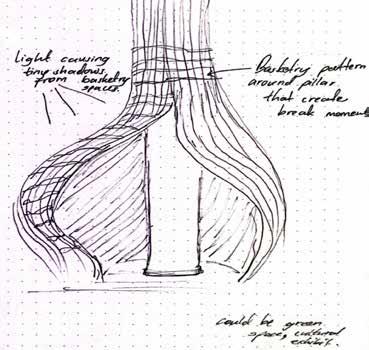 Light causing
tiny shadows
from basketry
spaces.
Basketry pattern
around pillar
that create
break moments
could be green
space, cultural
exhibit.